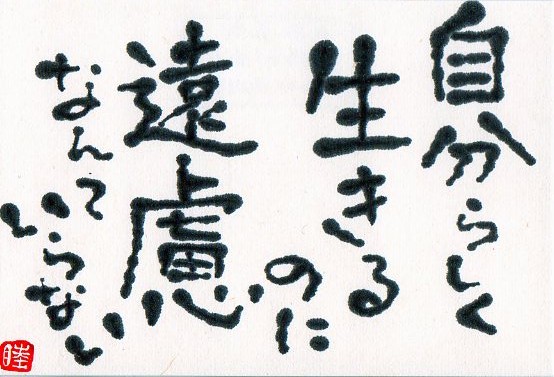 自分らしく
生きる
のに
遠慮
なんて
いらない
睦